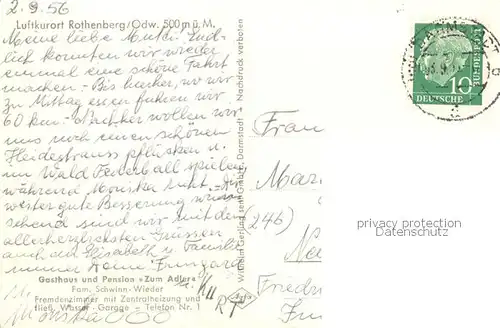 2.9.56
Luftkurort Rothenberg/Odw. 500 m ü. M.
Meine liebe Mutti! End-
lich konnten wir wieder
einmal eine schöne Fahrt
machen - Bis hierher, wo wir
zu Mittag essen fuhren wir
60 km - Nachher wollen wir
uns noch einen schönen
Heidestrauss pflücken u.
im Wald Federball spielen,
während Monika ruht. - Dir
weiter gute Besserung wün-
schend sind wir mit den
allerherzlichsten Grüssen
auch an Elisabeth u. Familie
immer Deine Irmgard
Gasthaus und Pension »Zum Adler«
Fam. Schwinn-Wieder
Fremdenzimmer mit Zentralheizung und
fließ. Wasser - Garage - Telefon Nr. 1
Monika
Wilhelm Gerling sen. GmbH, Darmstadt
Nachdruck verboten
DARMSTADT
10
DEUTSCHE
BUNDESPOST
Frau
Mar
(246)
Ne
Friedr
privacy protection
watermark